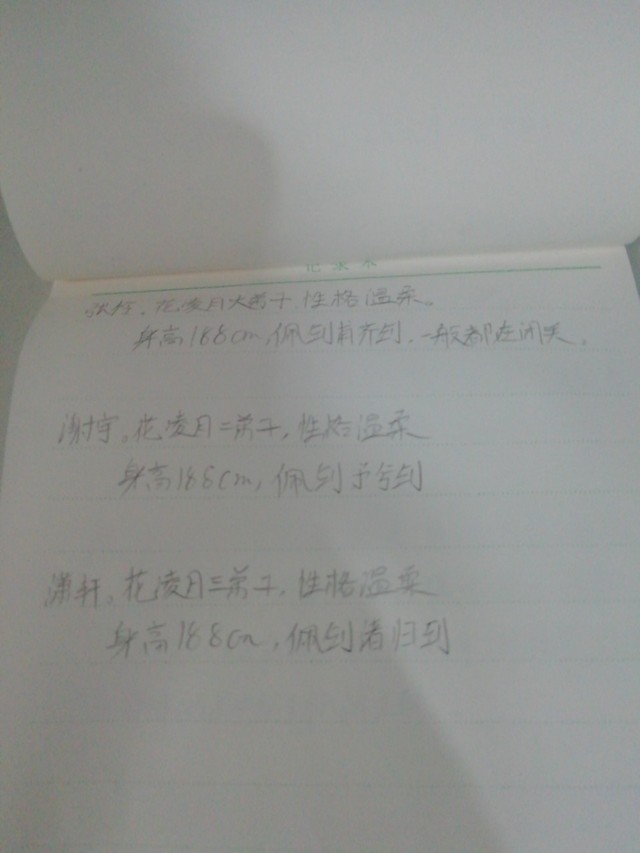 记录本
花凌月大弟子,性格温柔。
身高188cm,佩剑,一般都在闭关。
谢宇,花凌月二弟子,性格温柔
身高188cm,佩剑予兮剑
潇轩,花凌月三弟子,性格温柔
身高188cm,佩剑若归剑